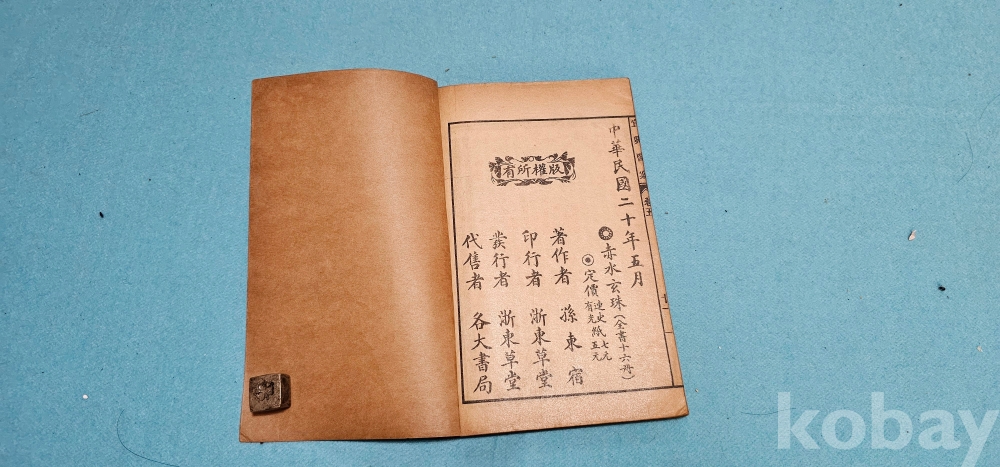 中華民國二十年五月
赤水玄珠(全書十六册)
定價 連史紙七元 有光紙五元
版權所有
著作者 孫東宿
印行者 浙東草堂
發行者 浙東草堂
代售者 各大書局
卷五
kobay